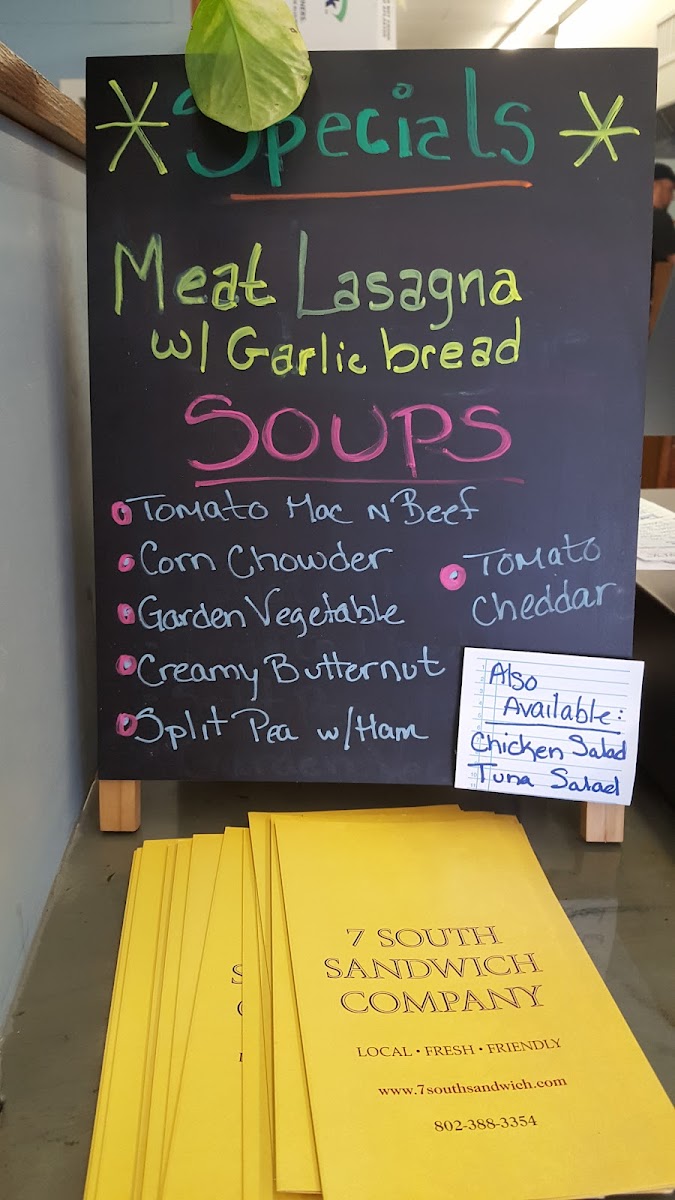 Specials
Meat Lasagna
w/ Garlic bread
SOUPS
Tomato Mac N Beef
Corn Chowder
Garden Vegetable
Creamy Butternut
Split Pea w/Ham
Tomato
Cheddar
Also
Available:
Chicken Salad
Tuna Salad
7 SOUTH
SANDWICH
COMPANY
LOCAL • FRESH • FRIENDLY
www.7southsandwich.com
802-388-3354